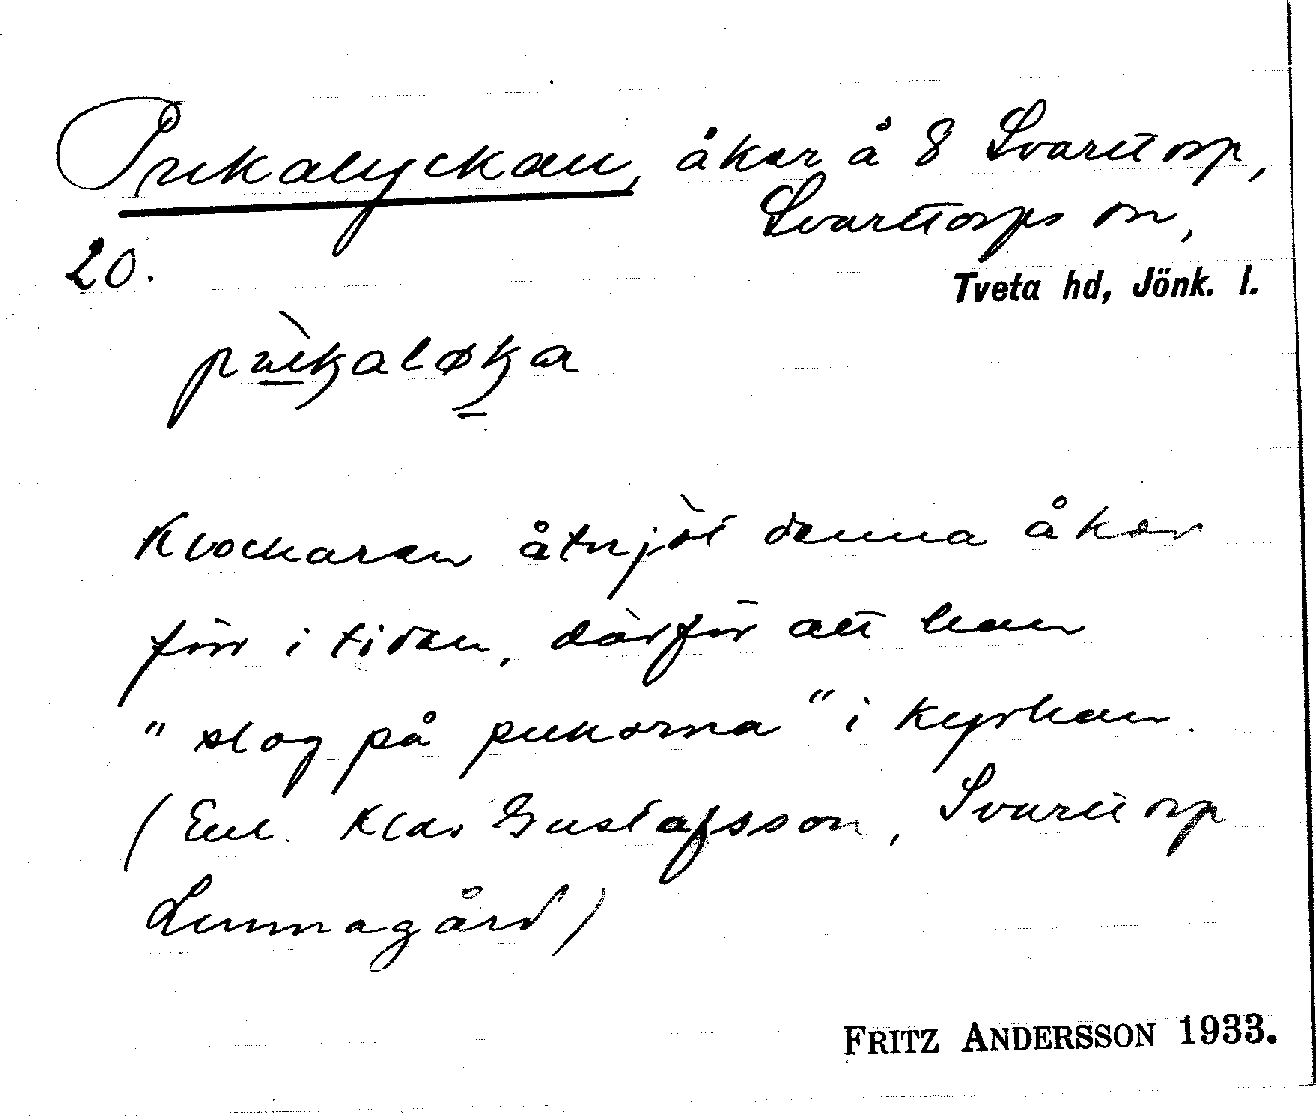 Pukalyckan, åker å 8 Svarttorp,
Svarttorps sn,
20.
Tveta hd, Jönk. l.
Klockaren åtnjöt denna åker
förr i tiden, därför att han
"slog på pukorna" i kyrkan.
(Enl. Klas Gustafsson, Svarttorp
Lunnagård)
FRITZ ANDERSSON 1933.